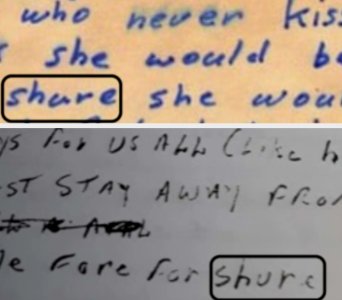 who never kiss
she would be
shure she wou
ys For US ALL (Like h
ST STAY AWAY FRO
Fare For shure